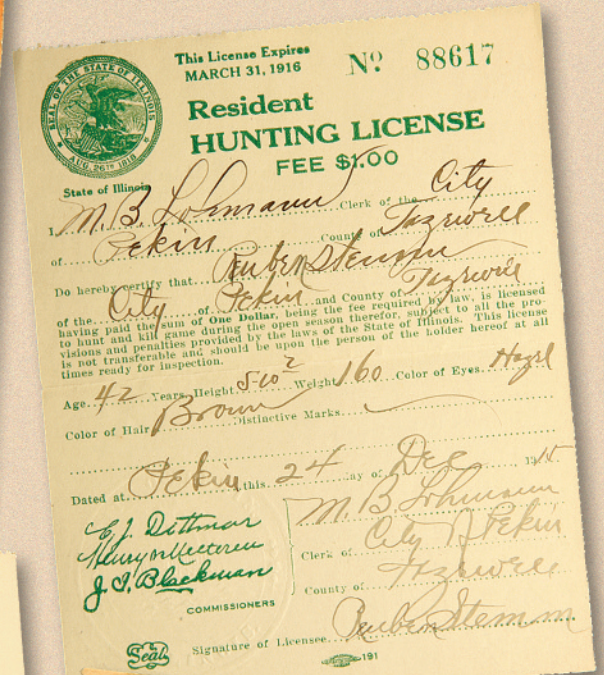 This License Expires
MARCH 31, 1916
Nº 88617
SEAL OF THE STATE OF ILLINOIS
AUG. 26TH 1818
Resident
HUNTING LICENSE
FEE $1.00
State of Illinois
I, M. B. Lohmann Clerk of the City
of Pekin County of Tazewell
Do hereby certify that Reuben Stemm
of the City of Pekin and County of Tazewell
having paid the sum of One Dollar, being the fee required by law, is licensed
to hunt and kill game during the open season therefor, subject to all the pro-
visions and penalties provided by the laws of the State of Illinois. This license
is not transferable and should be upon the person of the holder hereof at all
times ready for inspection.
Age 42 Years, Height 5-10 2 Weight 160 Color of Eyes Hazel
Color of Hair Brown Distinctive Marks
Dated at Pekin this 24 day of Dec, 1915
E. J. Dittmar
Henry
J. S. Blackman
COMMISSIONERS
M. B. Lohmann
Clerk of City of Pekin
County of Tazewell
Seal
Signature of Licensee Reuben Stemm
191